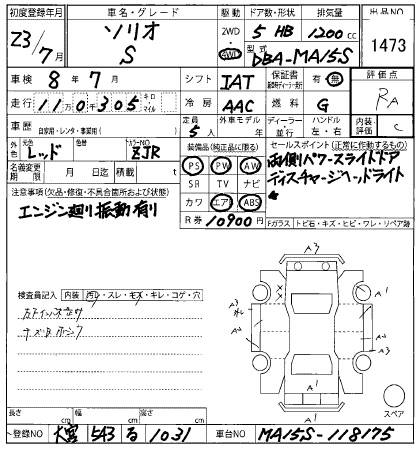 初度登録年月 車名・グレード 駆動 ドア数・形状 排気量 出品NO
23/7月 ソリオ S 2WD 4WD 5 HB 1200 cc 1473
型式 DBA-MA15S
車検 8年 7月 シフト IAT 保証書 有・無 評価点
走行 11万0千305 キロ・マイル 冷房 AAC 燃料 G RA
車歴 自家用・レンタ・事業用( ) 定員 5人 外車モデル 年 ディーラー 並行 ハンドル 左・右 内装評価 C
外色 元色 レッド 色替 カラーNO ZJR 装備品(純正品に限る) セールスポイント(正常に作動するもの)
名義変更期限 月 日迄 積載 t PS PW AW
両側パワースライドドア
SR TV ナビ
ディスチャージヘッドライト
注意事項(欠品・修復・不具合箇所および状態) カワ エア ABS
エンジン廻り振動有り
R券 10900円 Fガラス トビ石・キズ・ヒビ・ワレ・リペア跡
A3
検査員記入 内装 汚レ・スレ・キズ・キレ・コゲ・穴
A1
A3
A2
A3
A2
A1
A1
A1
スペア
長さ cm 幅 cm 高さ cm
登録NO 大宮 543 る 1031 車台NO MA15S-118175